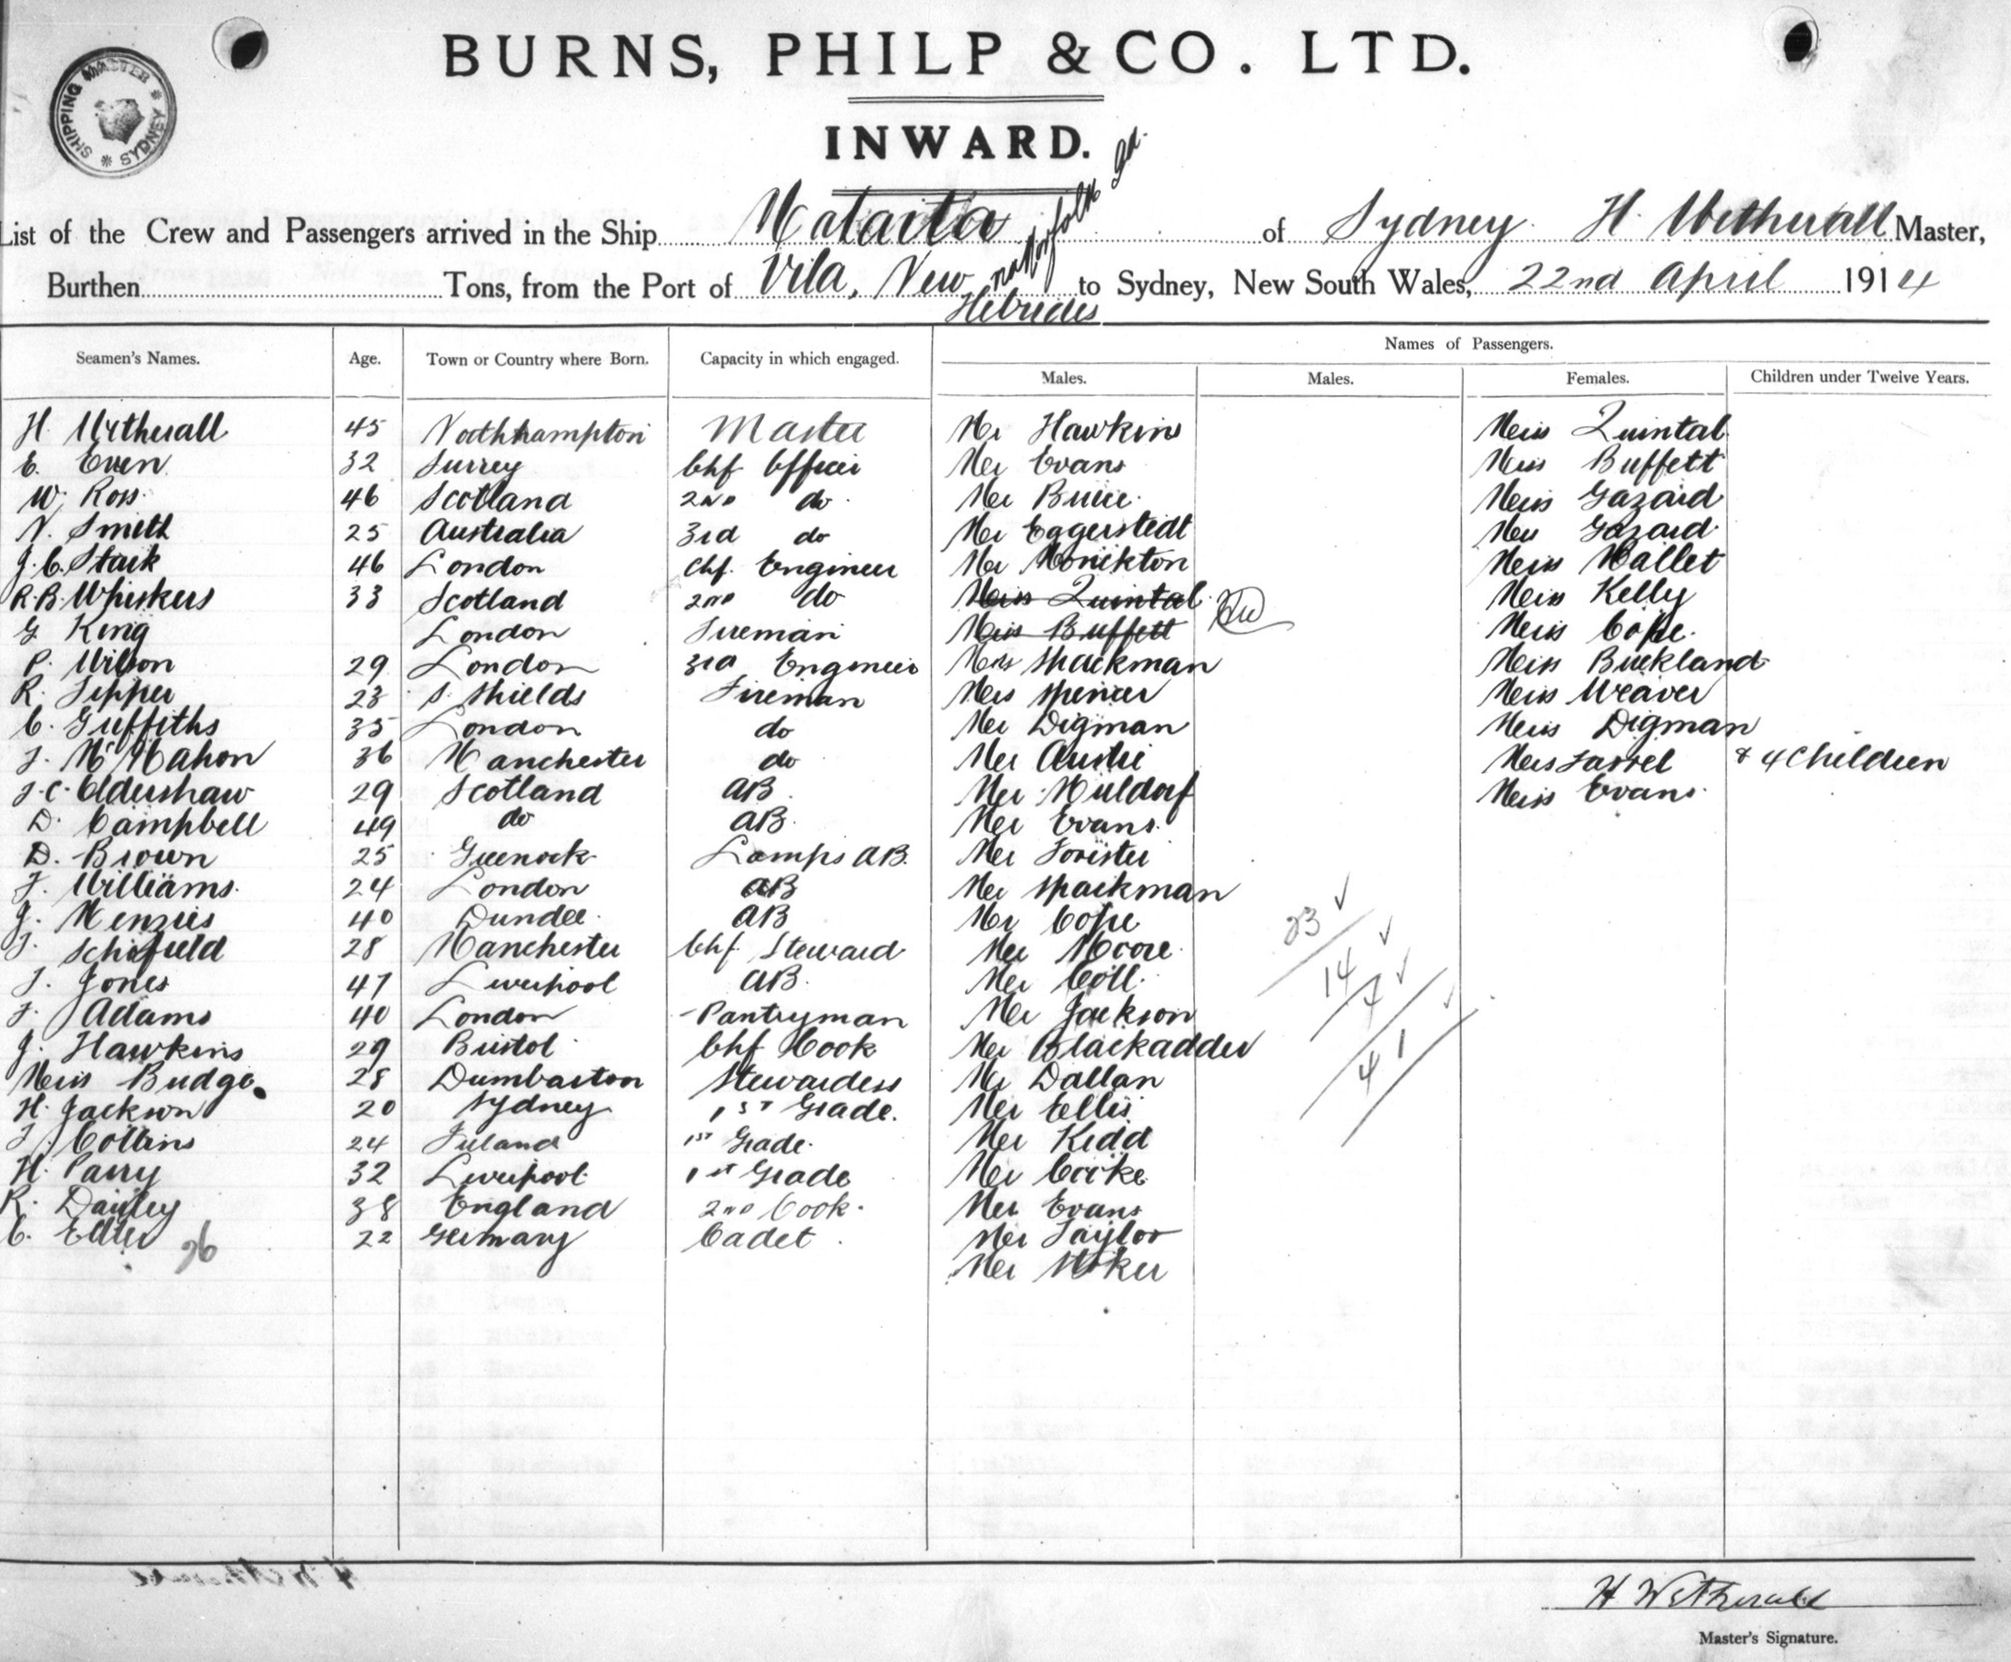 BURNS, PHILP & CO. LTD.
SHIPPING MASTER * SYDNEY *
INWARD.
List of the Crew and Passengers arrived in the Ship Mataita of Sydney H. Wetherall Master,
Burthen Tons, from the Port of Vila, New Hebrides via Norfolk Id. to Sydney, New South Wales, 22nd April 1914
Names of Passengers.
Seamen's Names. Age. Town or Country where Born. Capacity in which engaged. Males. Males. Females. Children under Twelve Years.
H. Wetherall 45 Northhampton Master Mr Hawkins Miss Quintal
E. Even 32 Surrey Chf Officer Mr Evans Miss Buffett
W. Ross 46 Scotland 2nd do Mr Miss Gazard
N. Smith 25 Australia 3rd do Mr Eggerstedt Mrs Gazard
J. C. Stark 46 London Chf. Engineer Mr Monckton Miss Mallet
R. B. Whiskers 33 Scotland 2nd do Miss Quintal Miss Kelly
G. King London Fireman Miss Buffett Miss Cope
P. Wilson 29 London 3rd Engineer Spackman Miss Buckland
R. Tipper 23 S. Shields Fireman Spencer Miss Weaver
C. Griffiths 35 London do Mr Digman Miss Digman
J. McMahon 36 Manchester do Mr Mrs & 4 Children
J. C. Oldershaw 29 Scotland AB Mr Muldorf Miss Evans
D. Campbell 49 do AB Mr Evans
D. Brown 25 Greenock Lamps AB. Mr Forister
F. Williams 24 London AB Mr Spackman
J. Menzies 40 Dundee AB Mr Cope
Schofield 28 Manchester Chf Steward Mr Moore
J. Jones 47 Liverpool AB Mr Coll
F. Adams 40 London Pantryman Mr Jackson
J. Hawkins 29 Bristol Chf Cook Mr Blackadder
Miss Budge 28 Dumbarton Stewardess Mr Dallan
H. Jackson 20 Sydney 1st Grade. Mr Ellis
J. Collins 24 Ireland 1st Grade. Mr Kidd
H. Parry 32 Liverpool 1st Grade Mr Cooke
R. Dailey 38 England 2nd Cook Mr Evans
C. Edler 22 Germany Cadet Mr Taylor
26
Mr Stoker
23
14
4
41
H Wetherall
Master's Signature.